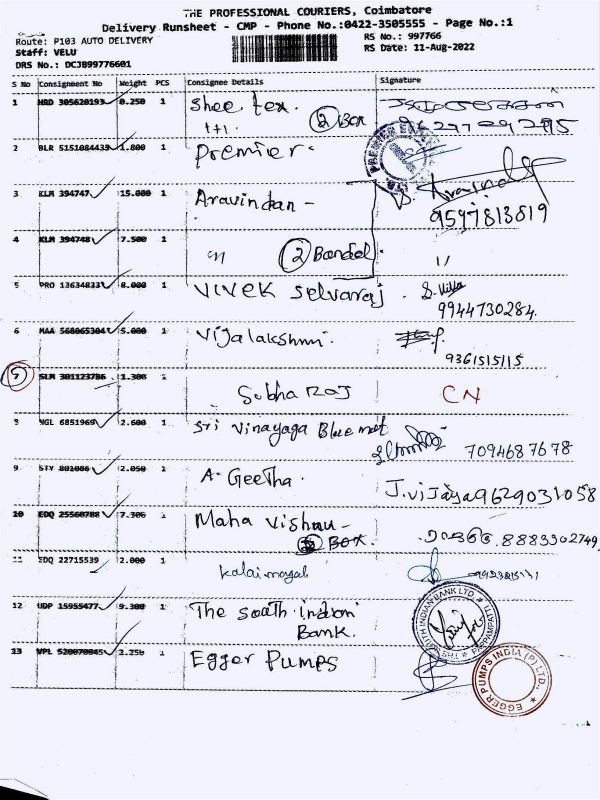 THE PROFESSIONAL COURIERS, Coimbatore
Delivery Runsheet - CMP - Phone No.:0422-3505555 - Page No.:1
Route: P103 AUTO DELIVERY
RS No.: 997766
Staff: VELU
RS Date: 11-Aug-2022
DRS No.: DCJB99776601
S No Consignment No Weight PCS Consignee Details Signature
1 HRD 305620193 0.250 1 Shee tex.
1+1. 2 Box
2 BLR 5151084435 1.800 1 Premier.
3 KLM 394747 15.000 1 Aravindan -
9597813819
4 KLM 394748 7.500 1 " 2 Bandel. "
5 PRO 13634833 8.000 1 Vivek Selvaraj.
9944730284.
6 MAA 568065304 5.000 1 Vijalakshmi.
9361515115
5 SLM 301123786 1.300 1 Subha Raj CN
8 NGL 6851969 2.600 1 Sri Vinayaga Blue met
7094687678
9 STY 801086 2.050 1 A. Geetha. J. Vijaya 9629031058
10 EDQ 25560788 7.306 1 Maha Vishnu -
Box. 8883302749
11 EDQ 22715539 2.000 1 Kalaimagal
12 UDP 15955477 9.300 1 The South Indian
Bank.
THE SOUTH INDIAN BANK LTD.
13 VPL 520070845 2.250 1 Egger Pumps
EGGER PUMPS INDIA (P) LTD.,